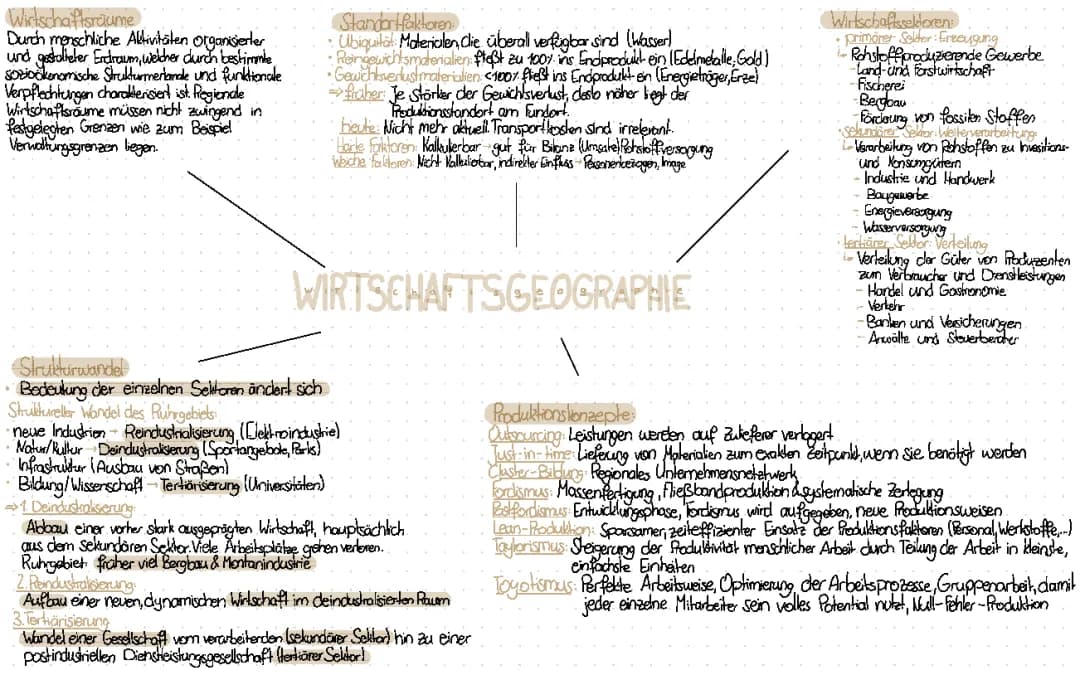 Wirtschaftsräume
Durch menschliche Aktivitäten organisierter
und gestalteter Erdraum, welcher durch bestimmte
sozioökonomische Strukturmerkmale und funktionale
Verpflechtungen charakterisiert ist. Regionale
Wirtschaftsräume müssen nicht zwingend in
festgelegten Grenzen wie zum Beispiel
Verwaltungsgrenzen liegen.
Standortfaktoren:
• Ubiquität: Materialen, die überall verfügbar sind (Wasser)
• Reingewichtsmaterialien: fließt zu 100% ins Endprodukt ein (Edelmetalle, Gold)
• Gewichtsverlustmaterialien: <100% fließt ins Endprodukt ein (Energieträger, Erze)
⇒ früher: Je stärker der Gewichtsverlust, desto näher liegt der
Produktionsstandort am Fundort.
heute: Nicht mehr aktuell. Transportkosten sind irrelevant.
Harte Faktoren: Kalkulierbar → gut für Bilanz (Umsatz) Rohstoffversorgung
Weiche Faktoren: Nicht kalkulierbar, indirekter Einfluss → Personenbezogen, Image
Wirtschaftssektoren:
• primärer Sektor: Erzeugung
↳ Rohstoffproduzierende Gewerbe
- Land- und Forstwirtschaft
- Fischerei
- Bergbau
- Förderung von fossilen Stoffen
• Sekundärer Sektor: Weiterverarbeitung
↳ Verarbeitung von Rohstoffen zu Investitions-
und Konsumgütern
- Industrie und Handwerk
- Baugewerbe
- Energieversorgung
- Wasserversorgung
• tertiärer Sektor: Verteilung
↳ Verteilung der Güter von Produzenten
zum Verbraucher und Dienstleistungen
- Handel und Gastronomie
- Verkehr
- Banken und Versicherungen
- Anwälte und Steuerberater
WIRTSCHAFTSGEOGRAPHIE
Strukturwandel
• Bedeutung der einzelnen Sektoren ändert sich
Struktureller Wandel des Ruhrgebiets:
• neue Industrien → Reindustrialisierung (Elektroindustrie)
• Natur/Kultur → Deindustrialisierung (Sportangebote, Parks)
• Infrastruktur (Ausbau von Straßen)
• Bildung/Wissenschaft → Tertiärisierung (Universitäten)
⇒ 1. Deindustralisierung:
Abbau einer vorher stark ausgeprägten Wirtschaft, hauptsächlich
aus dem sekundären Sektor. Viele Arbeitsplätze gehen verloren.
Ruhrgebiet: früher viel Bergbau & Montanindustrie
2. Reindustralisierung:
Aufbau einer neuen, dynamischen Wirtschaft im deindustralisierten Raum
3. Tertiärisierung
Wandel einer Gesellschaft vom verarbeitenden (sekundärer Sektor) hin zu einer
postindustriellen Dienstleistungsgesellschaft (tertiärer Sektor)
Produktionskonzepte:
Outsourcing: Leistungen werden auf Zulieferer verlagert
Just-in-time: Lieferung von Materialien zum exakten Zeitpunkt, wenn sie benötigt werden
Cluster-Bildung: Regionales Unternehmensnetzwerk
Fordismus: Massenfertigung, Fließbandproduktion & systematische Zerlegung
Postfordismus: Entwicklungsphase, Fordismus wird aufgegeben, neue Produktionsweisen
Lean-Produktion: Sparsamer, zeiteffizienter Einsatz der Produktionsfaktoren (Personal, Werkstoffe,...)
Taylorismus: Steigerung der Produktivität menschlicher Arbeit durch Teilung der Arbeit in kleinste,
einfachste Einheiten
Toyotismus: Perfekte Arbeitsweise, Optimierung der Arbeitsprozesse, Gruppenarbeit, damit
jeder einzelne Mitarbeiter sein volles Potential nutzt, Null-Fehler-Produktion